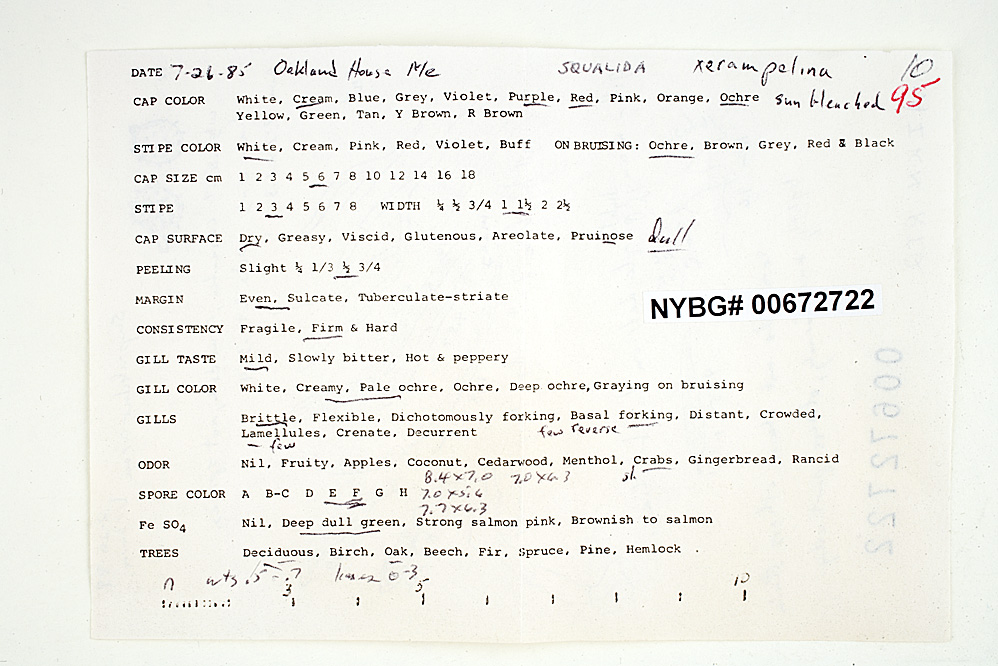 DATE 7-26-85 Oakland House Me SQUALIDA xerampelina 10
CAP COLOR White, Cream, Blue, Grey, Violet, Purple, Red, Pink, Orange, Ochre sun bleached 95
Yellow, Green, Tan, Y Brown, R Brown
STIPE COLOR White, Cream, Pink, Red, Violet, Buff ON BRUISING: Ochre, Brown, Grey, Red & Black
CAP SIZE cm 1 2 3 4 5 6 7 8 10 12 14 16 18
STIPE 1 2 3 4 5 6 7 8 WIDTH ¼ ½ 3/4 1 1½ 2 2½
CAP SURFACE Dry, Greasy, Viscid, Glutenous, Areolate, Pruinose dull
PEELING Slight ¼ 1/3 ½ 3/4
MARGIN Even, Sulcate, Tuberculate-striate
NYBG# 00672722
CONSISTENCY Fragile, Firm & Hard
GILL TASTE Mild, Slowly bitter, Hot & peppery
GILL COLOR White, Creamy, Pale ochre, Ochre, Deep ochre, Graying on bruising
GILLS Brittle, Flexible, Dichotomously forking, Basal forking, Distant, Crowded,
Lamellules, Crenate, Decurrent few reverse
few
ODOR Nil, Fruity, Apples, Coconut, Cedarwood, Menthol, Crabs, Gingerbread, Rancid
8.4 x 7.0 7.0 x 6.3 sl.
SPORE COLOR A B-C D E F G H 7.0 x 5.6
7.7 x 6.3
Fe SO4 Nil, Deep dull green, Strong salmon pink, Brownish to salmon
TREES Deciduous, Birch, Oak, Beech, Fir, Spruce, Pine, Hemlock .
n wts .5 - .7 0-3 10
3 5
00672722